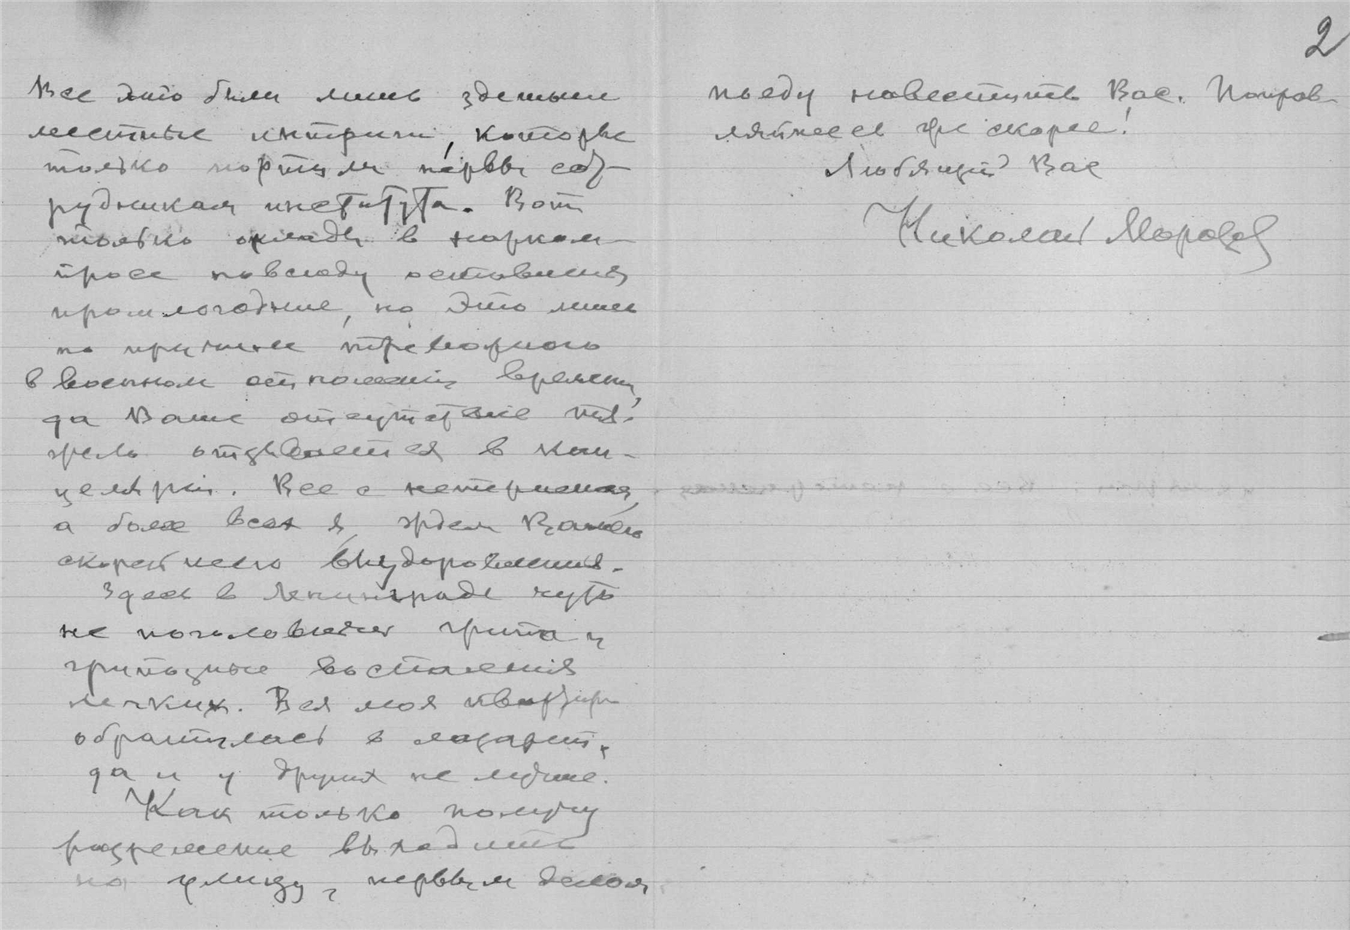 2
Все это были лишь здешние
местные интриги, которые
только портили нервы сот-
рудникам института. Вот
только оклады в нарком-
просе повсюду оставлены
прошлогодние, но это лишь
по причине тревожного
в военном отношении времени,
да Ваше отсутствие тя-
жело отзывается в кан-
целярии. Все с нетерпением,
а более всех я, ждем Вашего
скорейшего выздоровления.
Здесь в Ленинграде чуть
не поголовный грипп и
гриппозные воспаления
легких. Вся моя квартира
обратилась в лазарет,
да и у других не лучше.
Как только получу
разрешение выходить
на улицу, первым делом
поеду навестить Вас. Поправ-
ляйтесь же скорее!
Любящий Вас
Николай Морозов